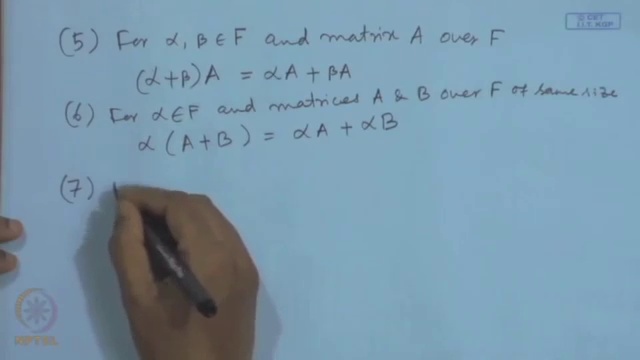 © CET
I.I.T. KGP
(5) For α, β ∈ F and matrix A over F
(α+β)A = αA + βA
(6) For α∈F and matrices A & B over F of same size
α (A+B) = αA + αB
(7)
NPTEL